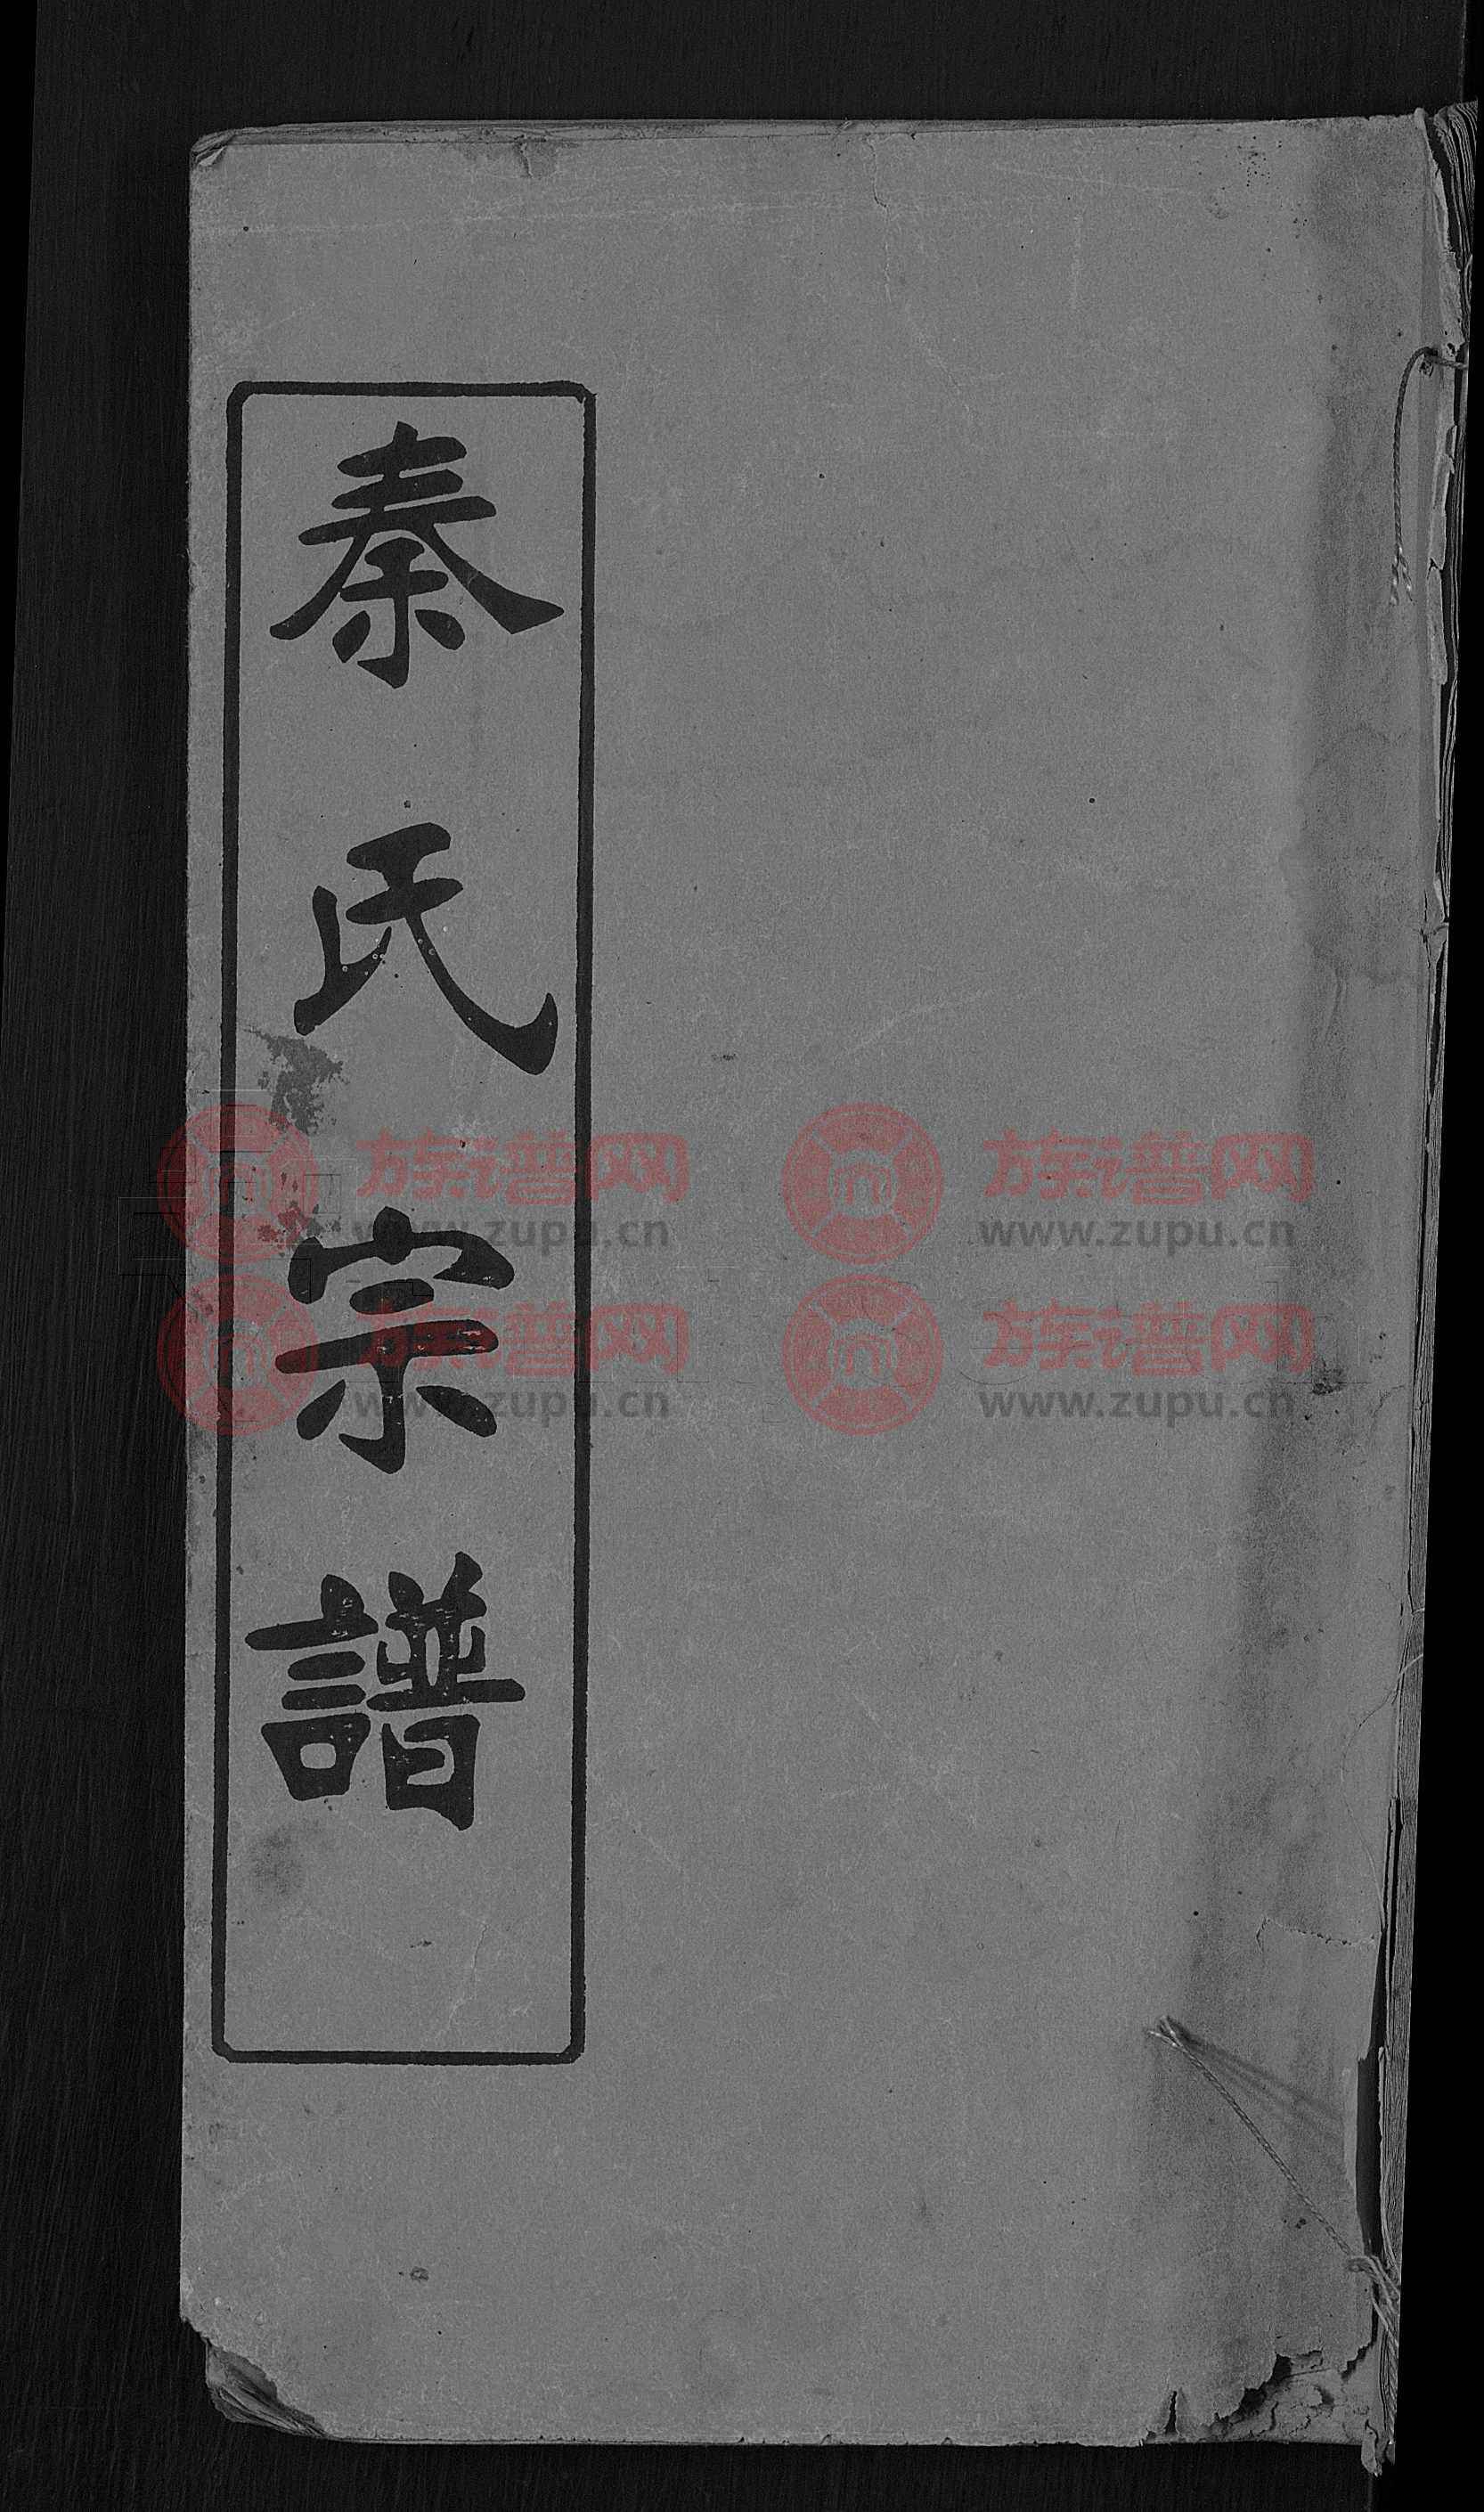 秦氏宗譜
族谱网
www.zupu.cn
族谱网
www.zupu.cn
族谱网
www.zupu.cn
族谱网
www.zupu.cn